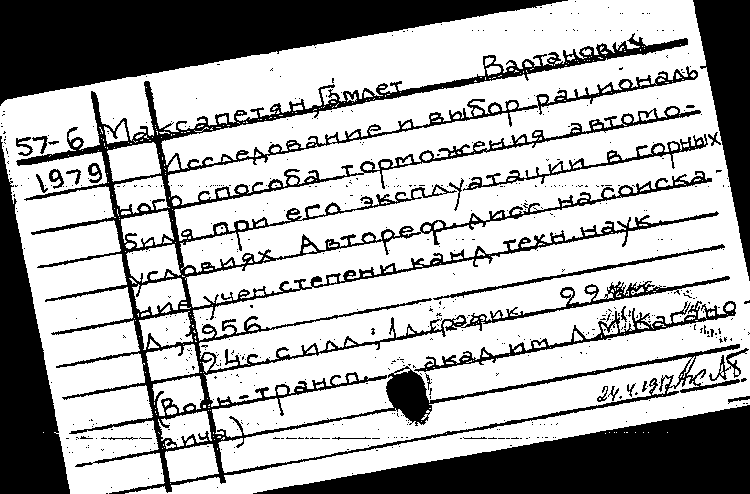 57-6 Максапетян, Гамлет Вартанович
1979 Исследование и выбор рациональ-
ного способа торможения автомо-
биля при его эксплуатации в горных
условиях. Автореф. дисс. на соиска-
ние учен. степени канд. техн. наук.
Л., 1956.
24 с. с илл.; 1 л. график. 22
(Воен-трансп. акад. им. Л. М. Кагано-
вича)